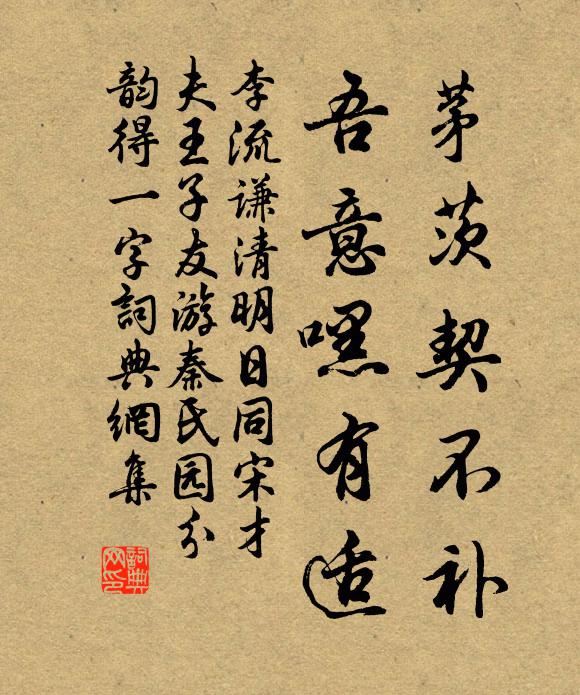 茅茨契不补
吾意嘿有适
李流谦清明日同宋才
夫王子友游秦氏园分
韵得一字詞典網集
詞典网印